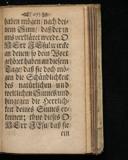 haben mögen / nach dei-
nem Sinn / daß der in
uns verkläret werde. O
HErr JEsu! wecke
an denen / so dem Wort
gehöret haben an diesem
Tage / daß sie doch mö-
gen die Schändlichkeit
des natürlichen und
weltlichen Sinnes und
hingegen die Herrlich-
keit deines Sinnes er-
kennen; thue dieses O
HErr JEsu / daß sie
ein